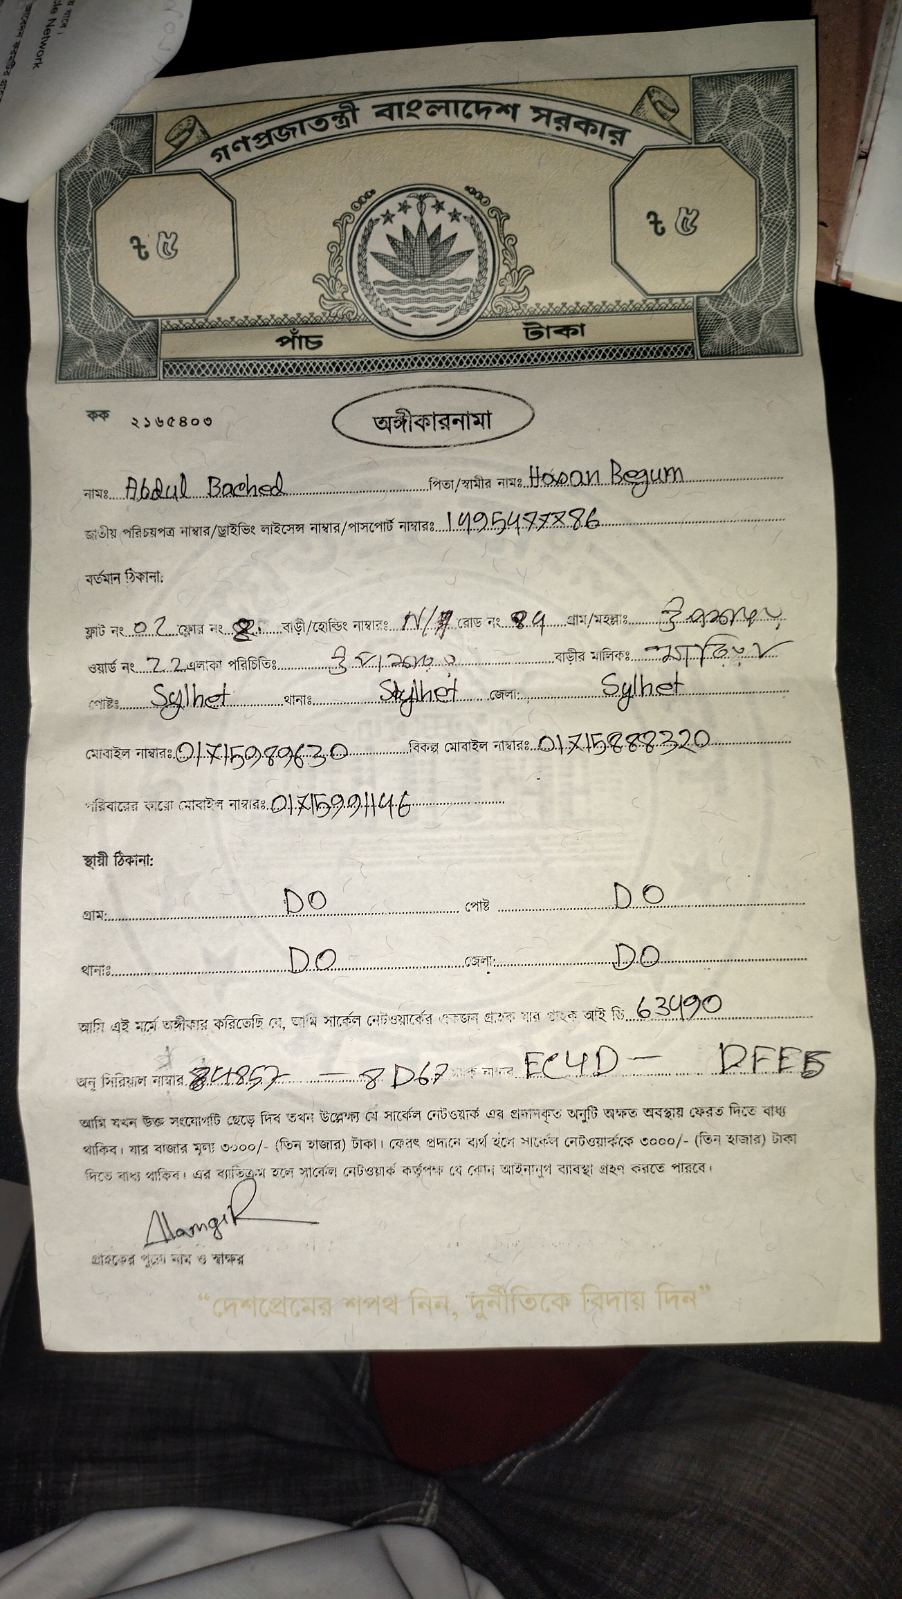 গণপ্রজাতন্ত্রী বাংলাদেশ সরকার
৳ ৫ ৳ ৫
পাঁচ টাকা
কক ২১৬৫৪০৩
অঙ্গীকারনামা
নামঃ Abdul Bached পিতা/স্বামীর নামঃ Hosan Begum
জাতীয় পরিচয়পত্র নাম্বার/ড্রাইভিং লাইসেন্স নাম্বার/পাসপোর্ট নাম্বারঃ 1495477786
বর্তমান ঠিকানা:
ফ্লাট নং 02 ফ্লোর নং বাড়ী/হোল্ডিং নাম্বারঃ N/A রোড নং 84 গ্রাম/মহল্লাঃ
ওয়ার্ড নং 22 এলাকা পরিচিতিঃ বাড়ীর মালিকঃ
পোষ্টঃ Sylhet থানাঃ Sylhet জেলা: Sylhet
মোবাইল নাম্বারঃ 01715989630 বিকল্প মোবাইল নাম্বারঃ 01715888320
পরিবারের কারো মোবাইল নাম্বারঃ 01715991146
স্থায়ী ঠিকানা:
গ্রাম: DO পোষ্ট DO
থানাঃ DO জেলা: DO
আমি এই মর্মে অঙ্গীকার করিতেছি যে, আমি সার্কেল নেটওয়ার্কের একজন গ্রাহক যার গ্রাহক আই ডি 63490
অনু সিরিয়াল নাম্বার – 8D67 EC4D – DFEB
আমি যখন উক্ত সংযোগটি ছেড়ে দিব তখন উল্লেখ্য যে সার্কেল নেটওয়ার্ক এর প্রদানকৃত অনুটি অক্ষত অবস্থায় ফেরত দিতে বাধ্য
থাকিব। যার বাজার মূল্য ৩০০০/- (তিন হাজার) টাকা। ফেরৎ প্রদানে ব্যর্থ হলে সার্কেল নেটওয়ার্ককে ৩০০০/- (তিন হাজার) টাকা
দিতে বাধ্য থাকিব। এর ব্যতিক্রম হলে সার্কেল নেটওয়ার্ক কর্তৃপক্ষ যে কোন আইনানুগ ব্যবস্থা গ্রহণ করতে পারবে।
AlamgiR
গ্রাহকের পুরো নাম ও স্বাক্ষর
“দেশপ্রেমের শপথ নিন, দুর্নীতিকে বিদায় দিন”